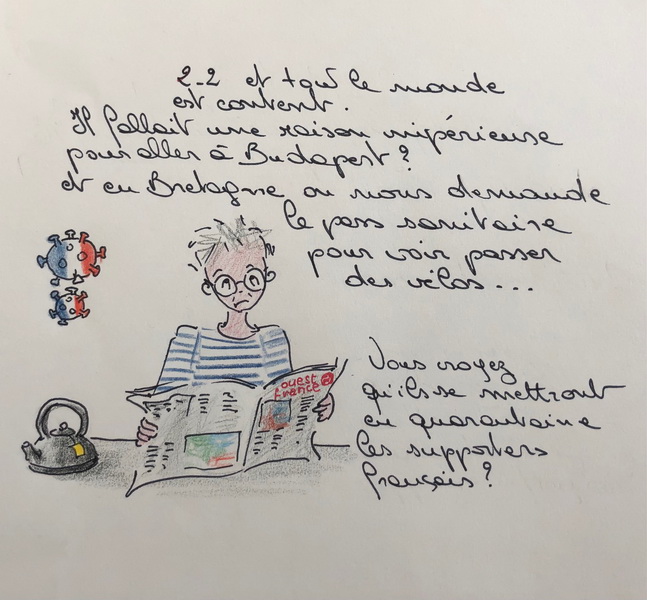 2-2 et tout le monde
est content.
Il fallait une raison impérieuse
pour aller à Budapest?
et en Bretagne on nous demande
le pass sanitaire
pour voir passer
des vélos...
ouest
france
Vous croyez
qu'ils se mettront
en quarantaine
les supporters
français?